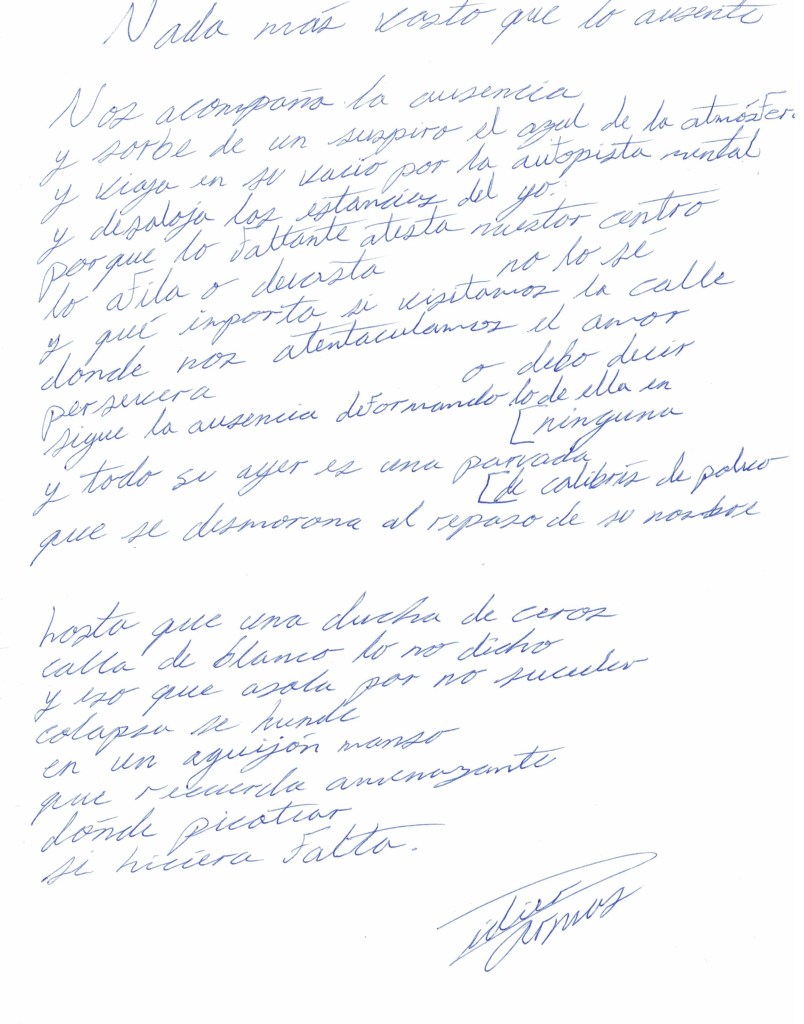 Nada más vasto que lo ausente
Nos acompaña la ausencia
y sorbe de un suspiro el azul de la atmósfera
y viaja en su vacío por la autopista mental
y desaloja las estancias del yo.
porque lo faltante atesta nuestor centro
lo afila o devasta no lo sé
y qué importa si visitamos la calle
donde nos atentaculamos el amor
persevera o debo decir
sigue la ausencia deformando lo de ella en
[ninguna
y todo su ayer es una parvada
[de colibrís de polvo
que se desmorona al repaso de su nombre
hasta que una ducha de ceros
calla de blanco lo no dicho
y eso que asola por no suceder
colapsa se hunde
en un aguijón manso
que recuerda amenazante
dónde picotear
si hiciera falta.